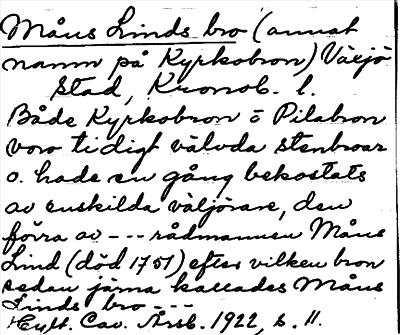 Måns Linds bro (annat
namn på Kyrkobron) Växjö
stad, Kronob. l.
Både Kyrkobron o Pilabron
voro tidigt välvda stenbroar
o. hade en gång bekostats
av enskilda växjörare, den
förra av --- rådmannen Måns
Lind (död 1751) efter vilken bron
sedan järna kallades Måns
Linds bro ---
Hylt. Cav. Årsb. 1922, s. 11.